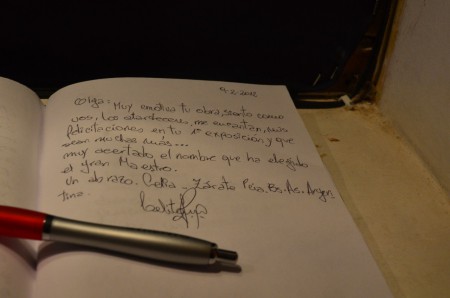 Olga: Muy emotiva tu obra, siento como
vos, los atardeceres, me encantan, mis
felicitaciones en tu 1º exposición y que
sean muchas más...
muy acertado el nombre que ha elegido
el gran Maestro.
Un abrazo. Celia - Zárate Pcia. Bs. As. Argen
tina.